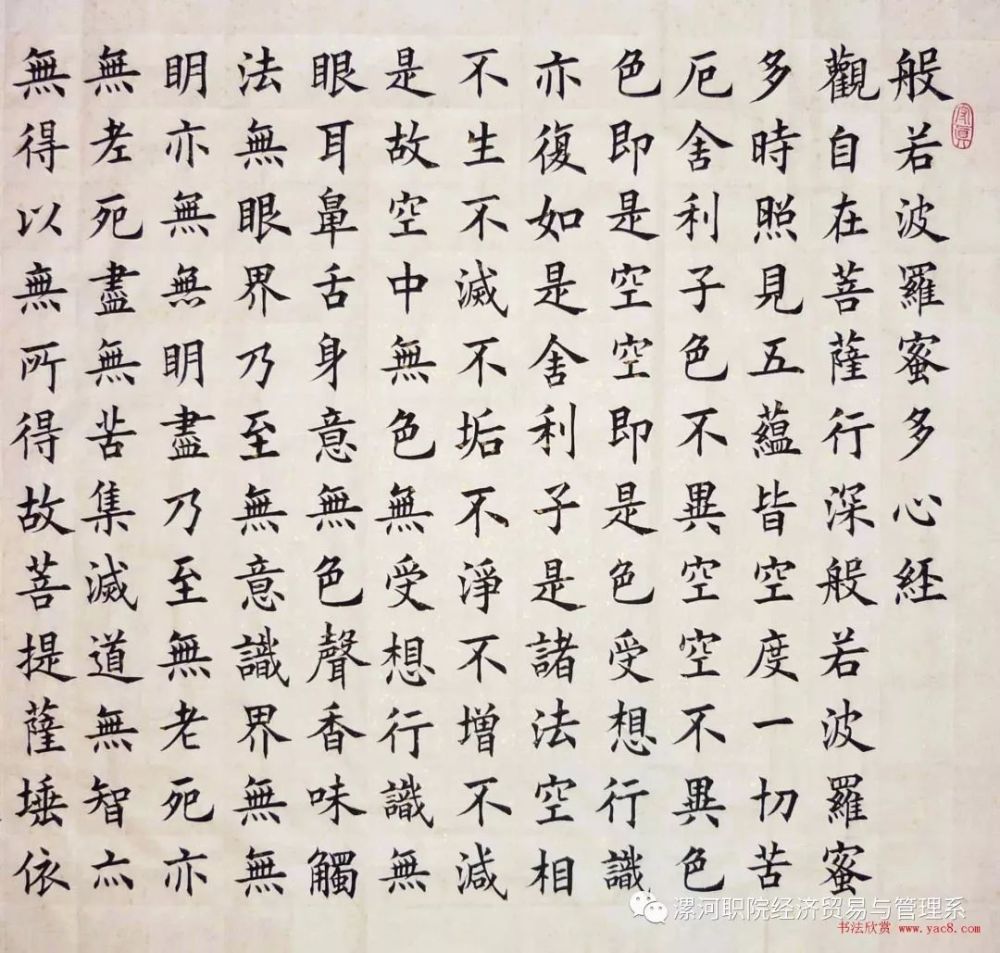 般若波羅蜜多心経
觀自在菩薩行深般若波羅蜜
多時照見五蘊皆空度一切苦
厄舍利子色不異空空不異色
色即是空空即是色受想行識
亦復如是舍利子是諸法空相
不生不滅不垢不淨不增不減
是故空中無色無受想行識無
眼耳鼻舌身意無色聲香味觸
法無眼界乃至無意識界無無
明亦無無明盡乃至無老死亦
無老死盡無苦集滅道無智亦
無得以無所得故菩提薩埵依
漯河职院经济贸易与管理系
书法欣赏 www.yac8.com